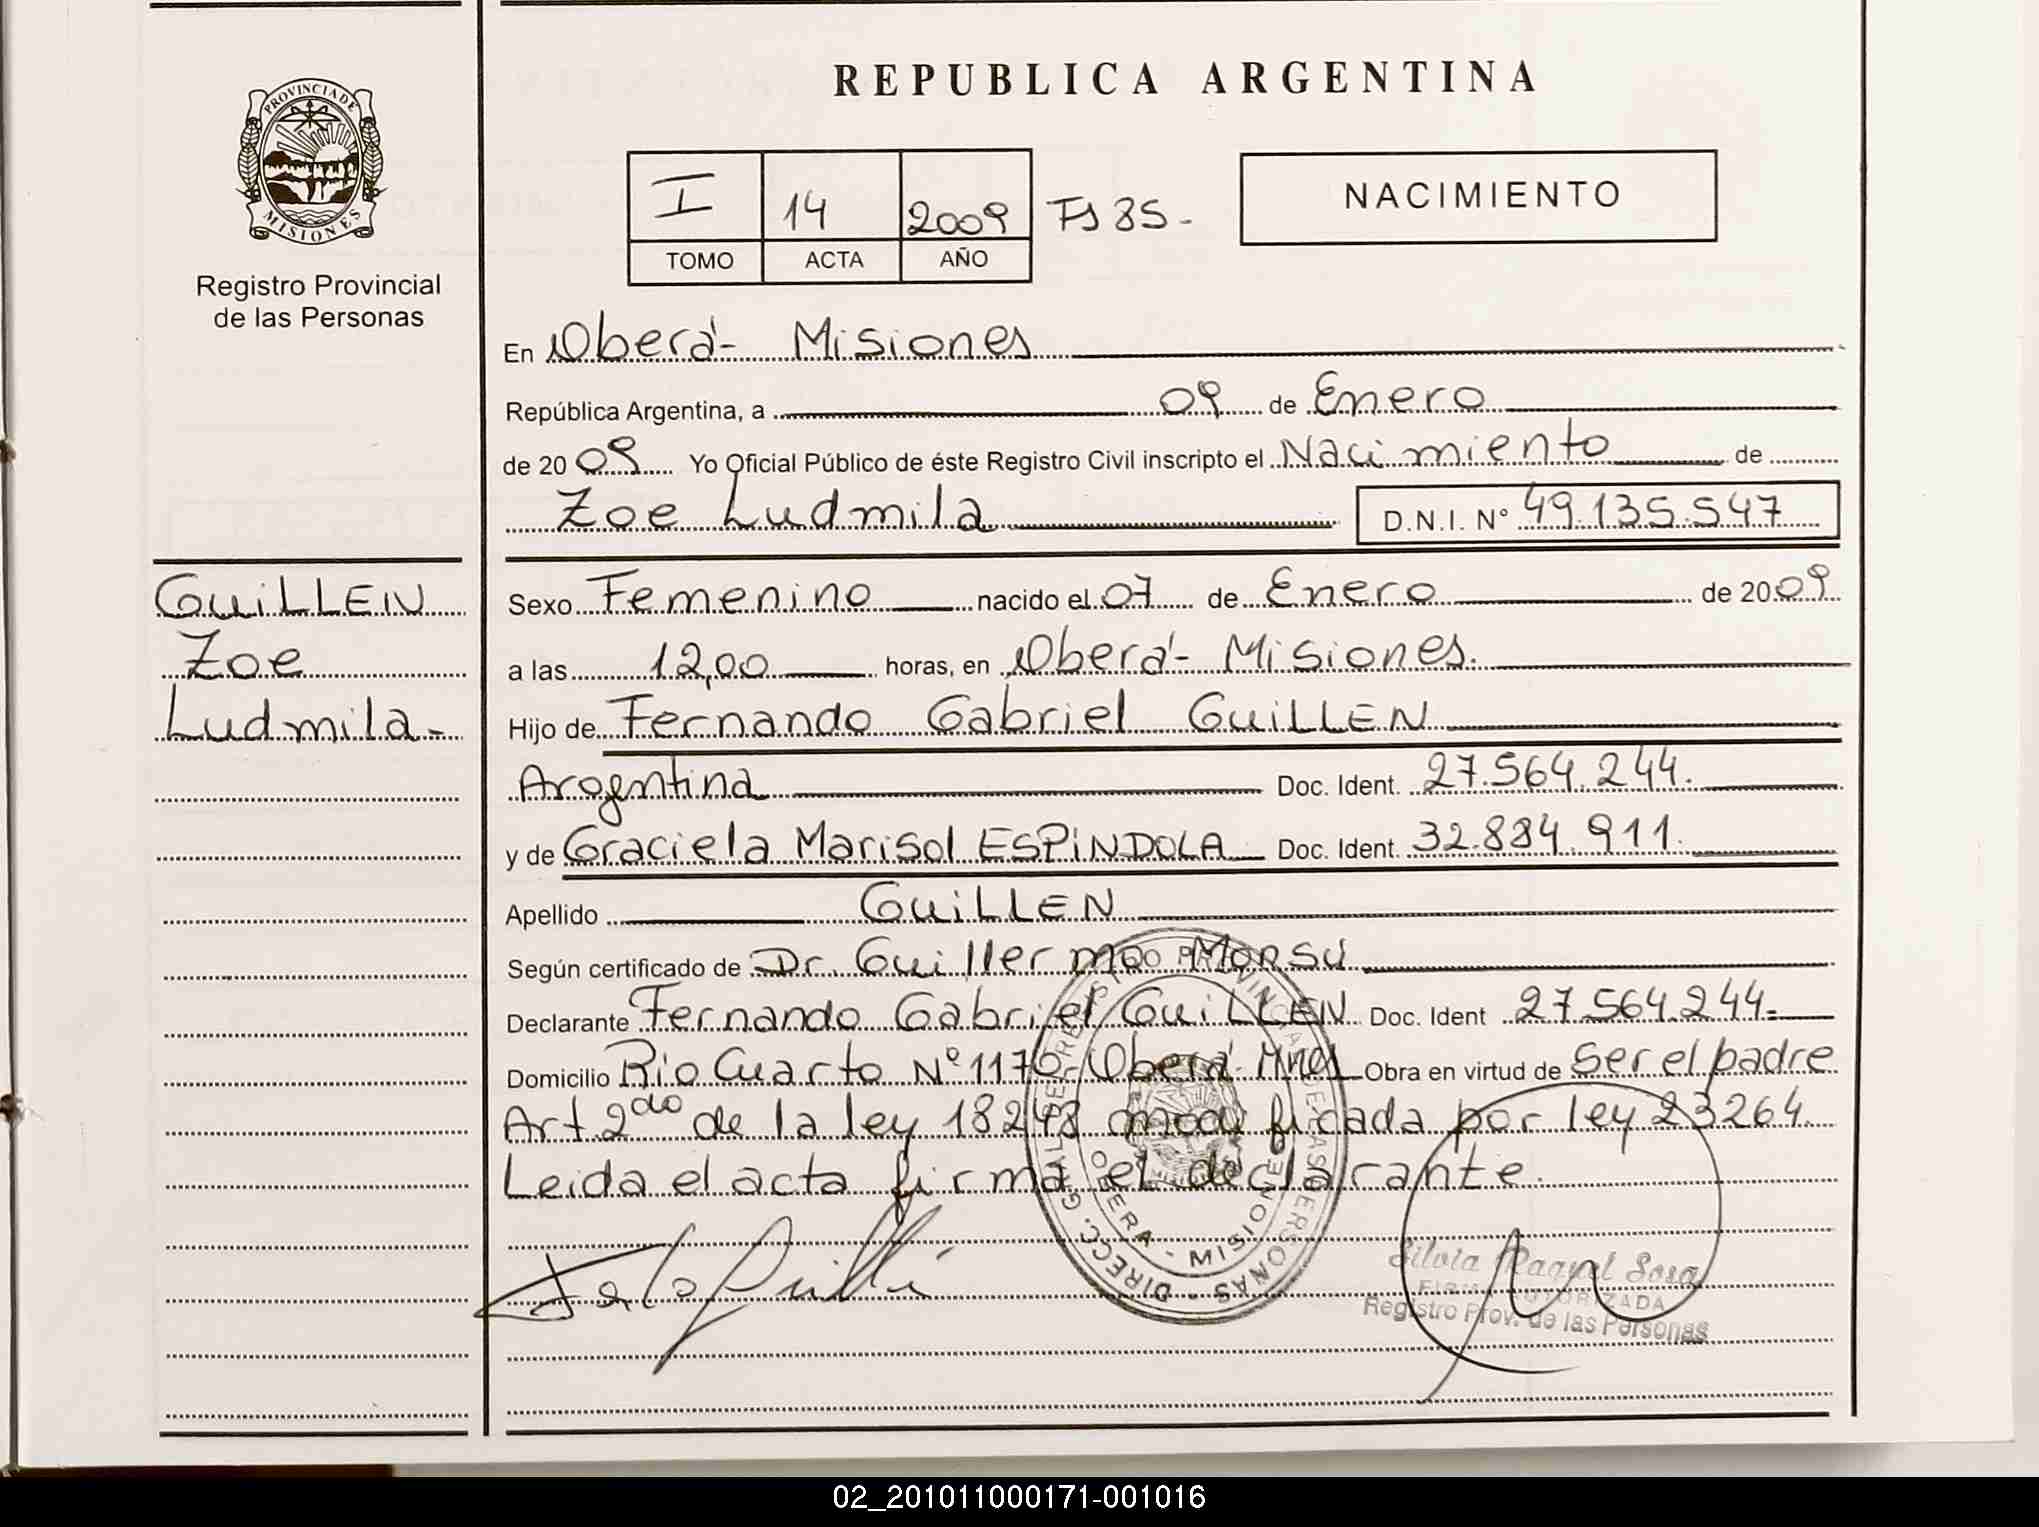 REPUBLICA ARGENTINA
PROVINCIA DE
MISIONES
Registro Provincial
de las Personas
I 14 2009 Fs 85-
TOMO ACTA AÑO
NACIMIENTO
En Oberá- Misiones
República Argentina, a 09 de Enero
de 2009 Yo Oficial Público de éste Registro Civil inscripto el Nacimiento de
Zoe Ludmila D.N.I. N° 49.135.547
GUiLLEN
Zoe
Ludmila-
Sexo Femenino nacido el 07 de Enero de 2009
a las 12,00 horas, en Oberá- Misiones.
Hijo de Fernando Gabriel GUiLLEN
Argentina Doc. Ident. 27.564.244.
y de Graciela Marisol ESPiNDOLA Doc. Ident. 32.884.911.
Apellido GUiLLEN
Según certificado de Dr. Guillermo Monsú
Declarante Fernando Gabriel GUiLLEN Doc. Ident 27.564.244-
Domicilio Rio Cuarto N° 1170- Oberá- Mnes Obra en virtud de Ser el padre
Art. 2do de la ley 18248 modificada por ley 23264.
Leida el acta firma el declarante.
DIRECC. GRAL. DE REGISTRO PROVINCIAL DE LAS PERSONAS
OBERA - MISIONES
Silvia Raquel Sosa
FIRMA AUTORIZADA
Registro Prov. de las Personas
02_201011000171-001016